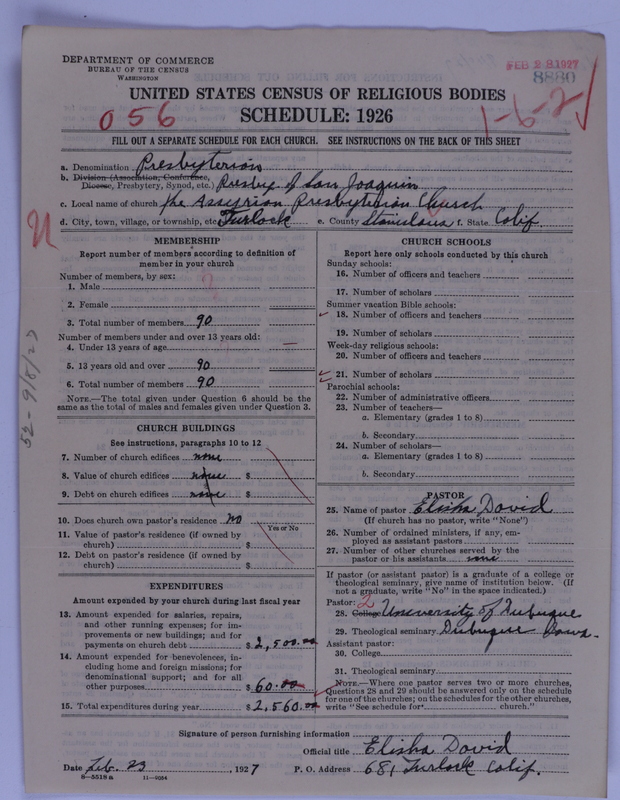 DEPARTMENT OF COMMERCE
BUREAU OF THE CENSUS
WASHINGTON
FEB 28 1927
8880
UNITED STATES CENSUS OF RELIGIOUS BODIES
056
SCHEDULE: 1926
1-6-2
FILL OUT A SEPARATE SCHEDULE FOR EACH CHURCH. SEE INSTRUCTIONS ON THE BACK OF THIS SHEET
a. Denomination Presbyterian
b. Division (Association, Conference,
Diocese, Presbytery, Synod, etc.) Presby. of San Joaquin
c. Local name of church the Assyrian Presbyterian Church
d. City, town, village, or township, etc. Turlock e. County Stanislaus f. State Calif.
MEMBERSHIP
Report number of members according to definition of
member in your church
Number of members, by sex:
1. Male
2. Female
3. Total number of members 90
Number of members under and over 13 years old:
4. Under 13 years of age —
5. 13 years old and over 90
6. Total number of members 90
NOTE.—The total given under Question 6 should be the
same as the total of males and females given under Question 3.
52-9/8/27
CHURCH BUILDINGS
See instructions, paragraphs 10 to 12
7. Number of church edifices none
8. Value of church edifices none $
9. Debt on church edifices none $
10. Does church own pastor's residence? No
Yes or No
11. Value of pastor's residence (if owned by
church) $
12. Debt on pastor's residence (if owned by
church) $
EXPENDITURES
Amount expended by your church during last fiscal year
13. Amount expended for salaries, repairs,
and other running expenses; for im-
provements or new buildings; and for
payments on church debt $ 2,500.00
14. Amount expended for benevolences, in-
cluding home and foreign missions; for
denominational support; and for all
other purposes $ 60.00
15. Total expenditures during year $ 2,560.00
CHURCH SCHOOLS
Report here only schools conducted by this church
Sunday schools:
16. Number of officers and teachers
17. Number of scholars
Summer vacation Bible schools:
18. Number of officers and teachers
19. Number of scholars
Week-day religious schools:
20. Number of officers and teachers
21. Number of scholars
Parochial schools:
22. Number of administrative officers
23. Number of teachers—
a. Elementary (grades 1 to 8)
b. Secondary
24. Number of scholars—
a. Elementary (grades 1 to 8)
b. Secondary
PASTOR
25. Name of pastor Elisha David
(If church has no pastor, write "None")
26. Number of ordained ministers, if any, em-
ployed as assistant pastors
27. Number of other churches served by the
pastor or his assistants none
If pastor (or assistant pastor) is a graduate of a college or
theological seminary, give name of institution below. (If
not a graduate, write "No" in the space indicated.)
Pastor: 2
28. College University of Dubuque
29. Theological seminary Dubuque Iowa.
Assistant pastor:
30. College
31. Theological seminary
NOTE.—Where one pastor serves two or more churches,
Questions 28 and 29 should be answered only on the schedule
for one of the churches; on the schedules for the other churches,
write "See schedule for church."
Signature of person furnishing information
Official title Elisha David
Date Feb. 23, 1927 P. O. Address 681 Turlock Calif.
8-5518 a 11-9084